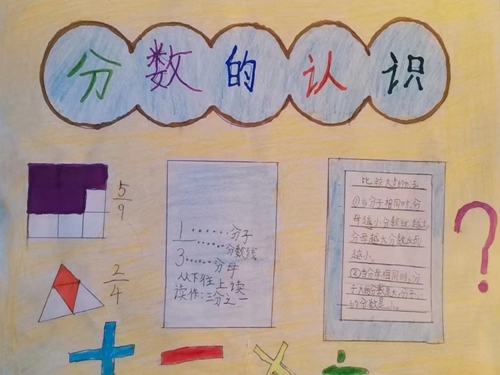 分数的认识
5
9
2
4
1……分子
……分数线
3……分母
从下往上读
读作:三分之一
比较大小的方法
①当分子相同时,分
母越小分数就越大,
分母越大分数反而
越小。
②当分母相同时,分
?
+ － × ÷